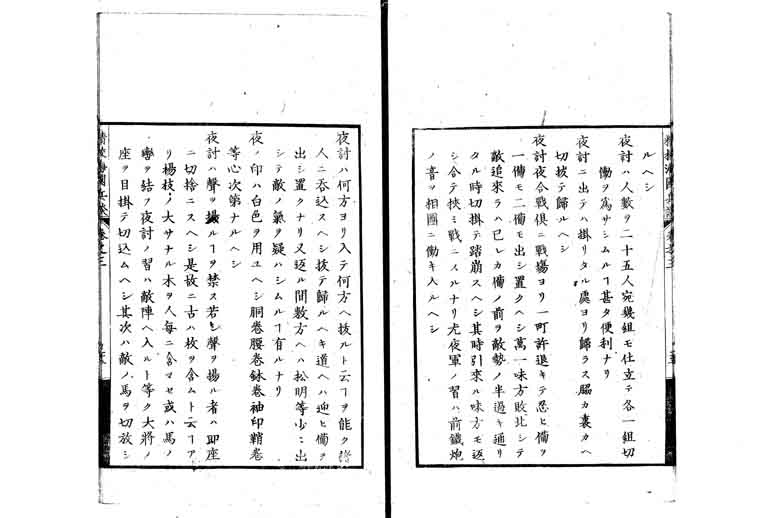 ルヘシ
夜討ハ人數ヲ二十五人宛幾組モ仕立テ各一組切
働ヲ爲サシムルヿ甚タ便利ナリ
夜討ニ出テハ掛リタル處ヨリ歸ラス脇カ裏カヘ
切拔テ歸ルヘシ
夜討夜合戰俱ニ戰塲ヨリ一町許退キテ忍ヒ備ヲ
一備モ二備モ出シ置クヘシ萬一味方敗北シテ
敵追來ラハ己レカ備ノ前ヲ敵勢ノ半過キ通リ
タル時切掛テ踏崩スヘシ其時引來ル味方モ返
シ合テ挾ミ戰ニスルナリ尤夜軍ノ習ハ前鐵炮
ノ音ヲ相圖ニ働キ入ルヘシ
夜討ハ何方ヨリ入テ何方ヘ拔ルト云フヿヲ能ク諸
人ニ呑込スヘシ拔テ歸ルヘキ道ヘハ迎ヒ備ヲ
出シ置クナリ又返ル間數方ヘハ松明等少々出
シテ敵ノ氣ヲ疑ハシムルヿ有ルナリ
夜ノ印ハ白色ヲ用ユヘシ胴卷腰卷鉢卷袖印鞘卷
等心次第ナルヘシ
夜討ハ聲ヲ揚ルヿヲ禁ス若シ聲ヲ揚ル者ハ即座
ニ切捨ニスヘシ是故ニ古ハ枚ヲ含ムト云フヿア
リ楊枝ノ大サナル木ヲ人每ニ含マセ或ハ馬ノ
轡ヲ結フ夜討ノ習ハ敵陣ヘ入ルト等ク大將ノ
座ヲ目掛テ切込ムヘシ其次ハ敵ノ馬ヲ切放シ
精校海國兵談 卷之三